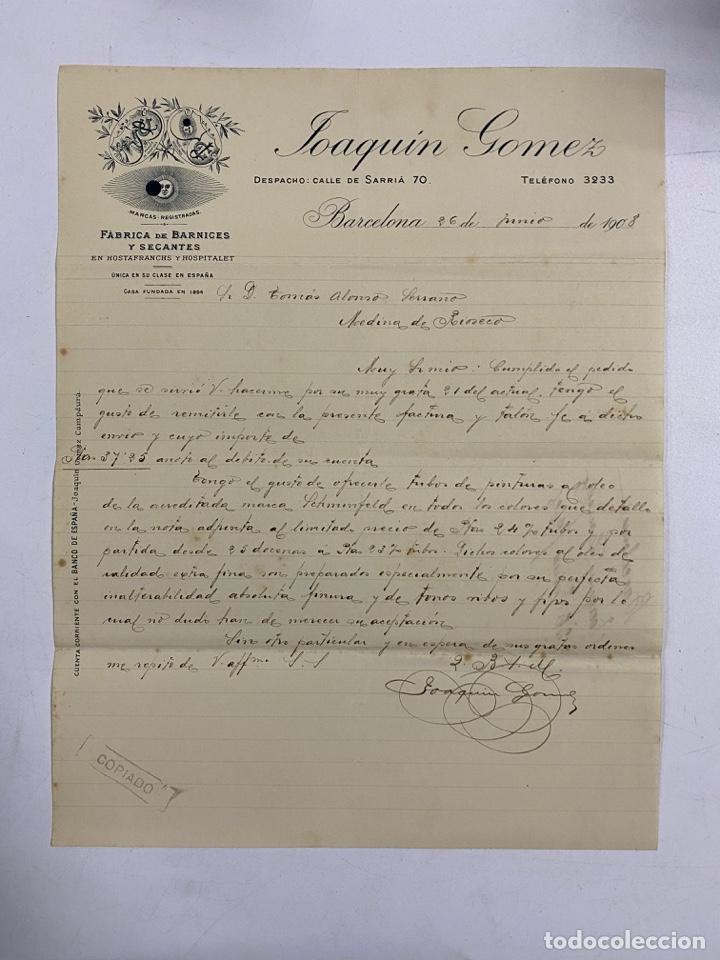 Joaquín Gomez
DESPACHO: CALLE DE SARRIÁ 70. TELÉFONO 3233
MARCAS REGISTRADAS
FÁBRICA DE BARNICES
Y SECANTES
EN HOSTAFRANCHS Y HOSPITALET
ÚNICA EN SU CLASE EN ESPAÑA
CASA FUNDADA EN 1884
Barcelona 26 de Junio de 1908
Sr D. Tomás Alonso Serrano
Medina de Rioseco
Muy Sr mio: Cumplido el pedido
que se sirvió V. hacerme por su muy grata 21 del actual, tengo el
gusto de remitirle con la presente factura y talón fc a dicho
envio y cuyo importe de
Ptas 37'25 anoto al debito de su cuenta
Tengo el gusto de ofrecerle tubos de pinturas al oleo
de la acreditada marca Schmonfeld en todos los colores que detallo
en la nota adjunta al limitado precio de Ptas 24 % tubos y por
partida desde 25 docenas á Ptas 23 % tubos. Dichos colores al oleo de
calidad extra fina son preparados especialmente por su perfecta
inalterabilidad absoluta finura y de tonos vivos y fijos por lo
cual no dudo han de merecer su aceptación.
Sin otro particular y en espera de sus gratas ordenes
me repito de V. affmo S. S.
Joaquin Gomez
CUENTA CORRIENTE CON EL BANCO DE ESPAÑA-Joaquin Gomez Campdurá
COPIADO
todocoleccion